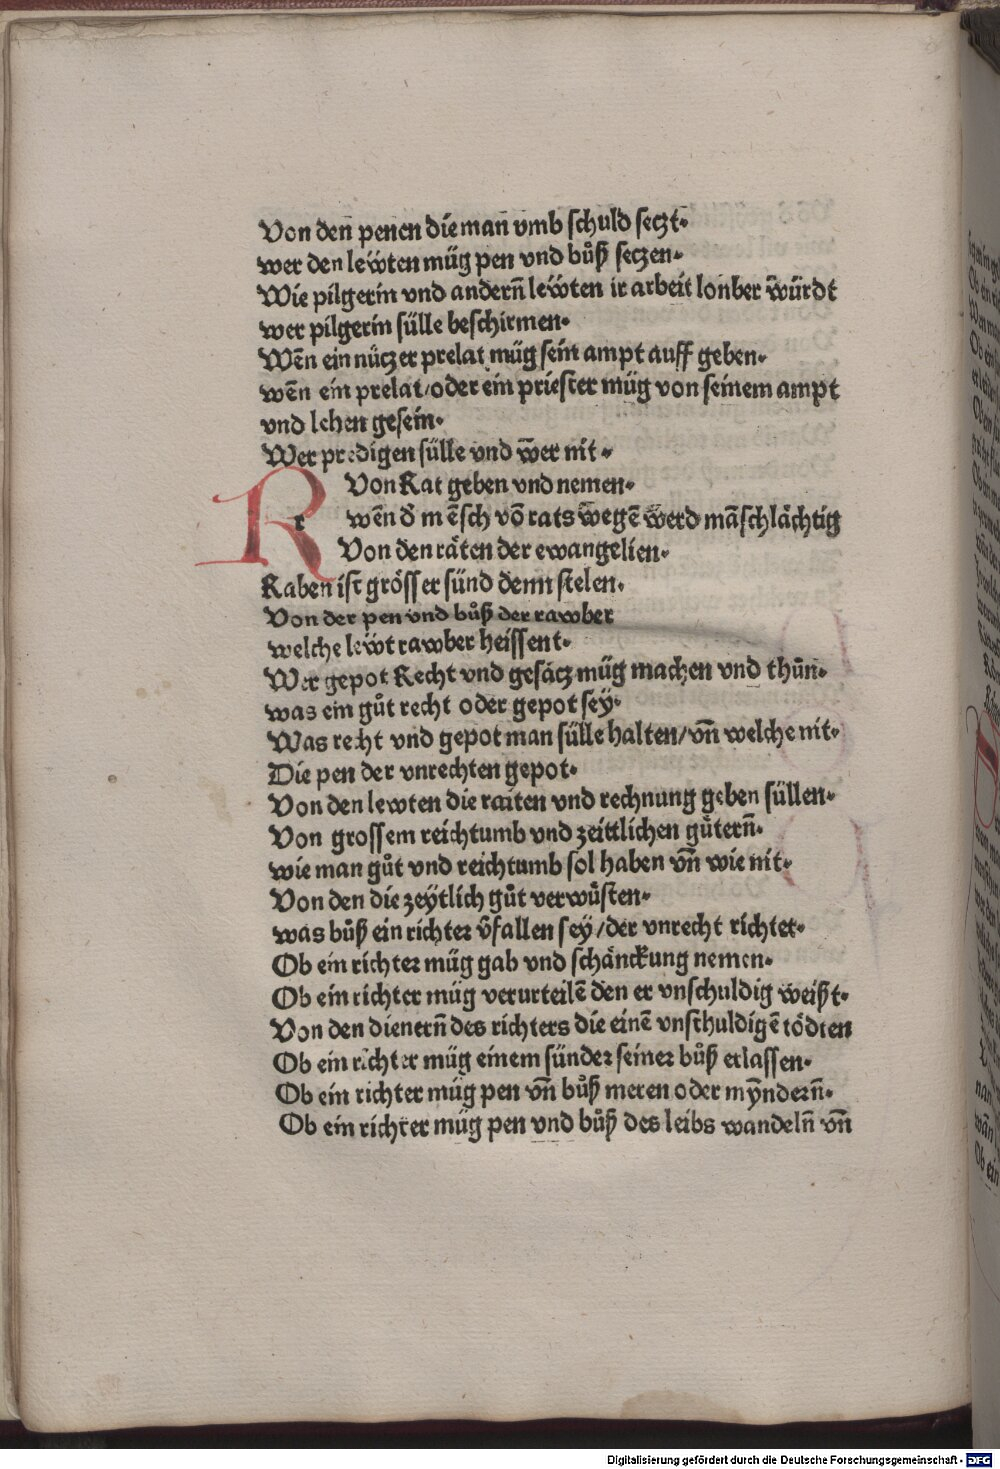 Von den penen die man vmb schuld seczt·
wer den lewten müg pen vnd bůß seczen·
Wie pilgerin vnd andern̄ lewten ir arbeit lonber w̄ürdt
wer pilgerin sülle beschirmen·
Wēn ein nüczer prelat müg sein ampt auff geben·
wēn ein prelat/oder ein priester müg von seinem ampt
vnd lehen gesein·
Wer predigen sülle vnd w̄er nit·
R
r
Von Rat geben vnd nemen·
wēn d̄ mēsch vō rats wegē werd māschlächtig
Von den räten der ewangelien·
Raben ist grösser sünd denn stelen·
Von der pen vnd bůß der rawber
welche lewt rawber heissent·
Wer gepot Recht vnd gesäcz müg machen vnd thůn·
was ein gůt recht oder gepot sey·
Was recht vnd gepot man sülle halten/vn̄ welche nit·
Die pen der vnrechten gepot·
Von den lewten die raiten vnd rechnung geben süllen·
Von grossem reichtumb vnd zeittlichen gütern̄·
wie man gůt vnd reichtumb sol haben vn̄ wie nit·
Von den die zeytlich gůt verwůsten·
was bůß ein richter v̄fallen sey/der vnrecht richtet·
Ob ein richter müg gab vnd schänckung nemen·
Ob ein richter müg verurteilē den er vnschuldig weißt·
Von den dienern̄ des richters die einē vnschuldigē tödten
Ob ein richter müg einem sünder seiner bůß erlassen·
Ob ein richter müg pen vn̄ bůß meren oder mȳndern̄·
Ob ein richter müg pen vnd bůß des leibs wandeln̄ vn̄
Digitalisierung gefördert durch die Deutsche Forschungsgemeinschaft - DFG